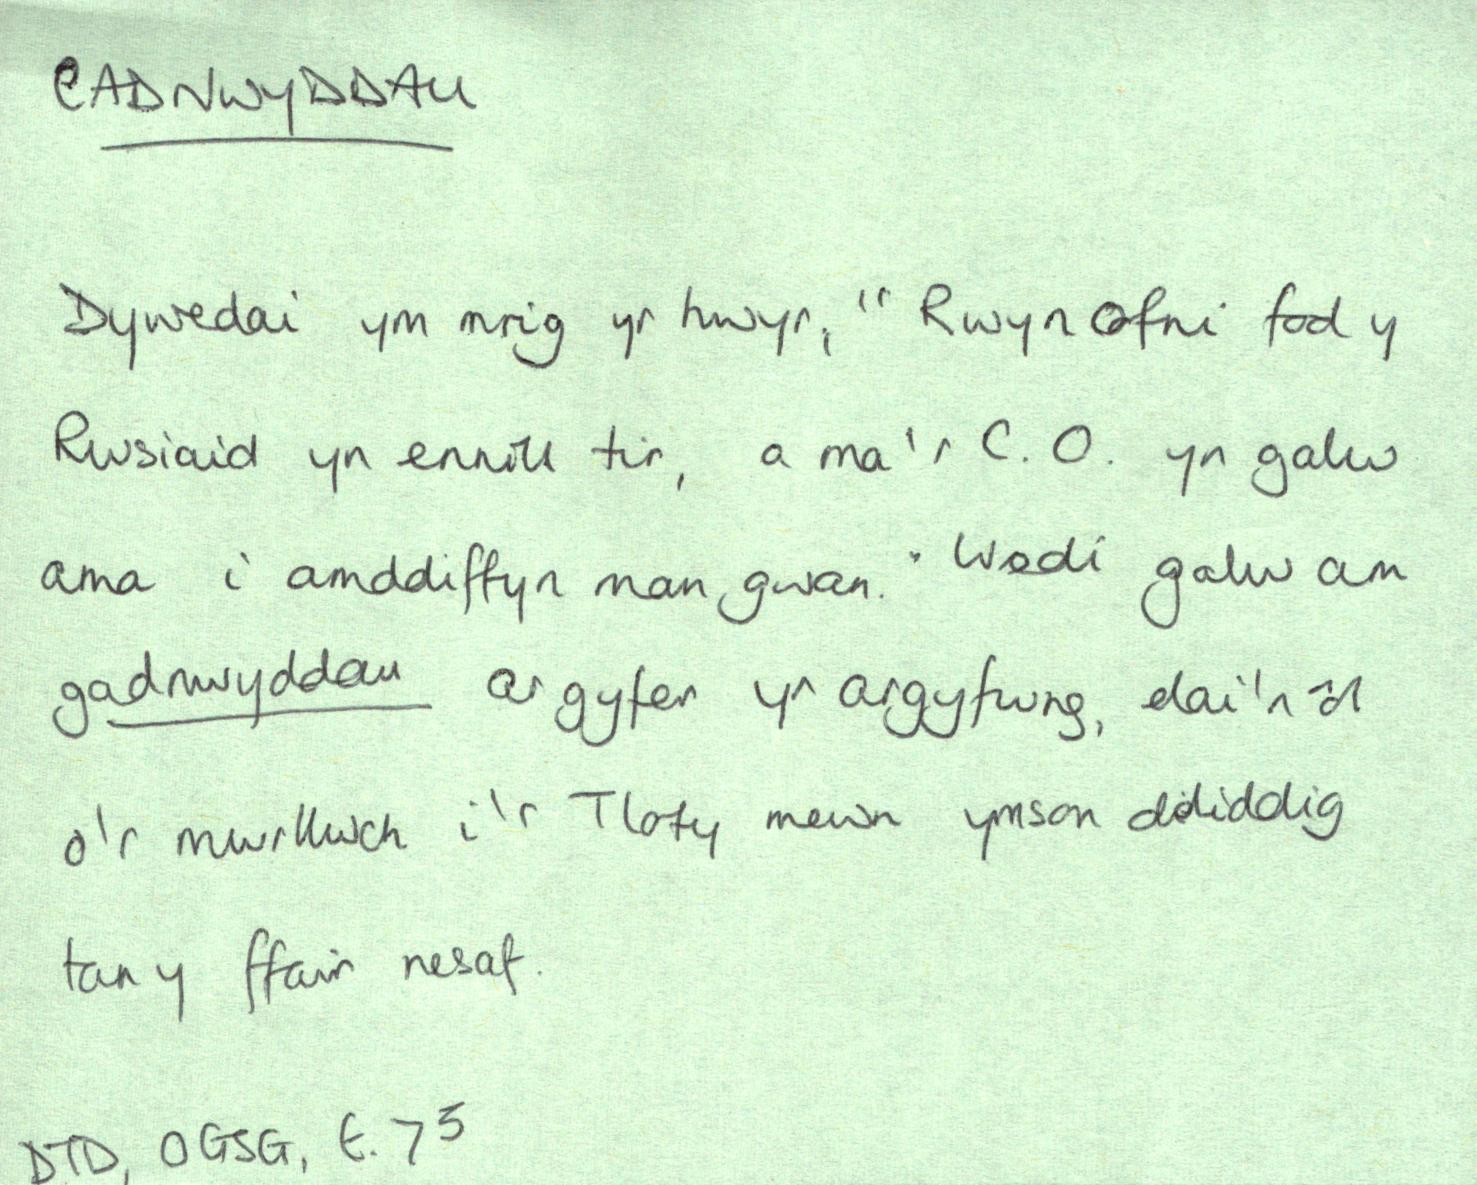 CADNWYDDAU
Dywedai ym mrig yr hwyr, "Rwyn ofni fod y
Rwsiaid yn ennill tir, a ma'r C.O. yn galw
ama i amddiffyn man gwan." Wedi galw am
gadnwyddau ar gyfer yr argyfwng, elai'n ol
o'r mwrllwch i'r Tloty mewn ymson ddiddig
tan y ffair nesaf.
DTD, OGSG, t. 75